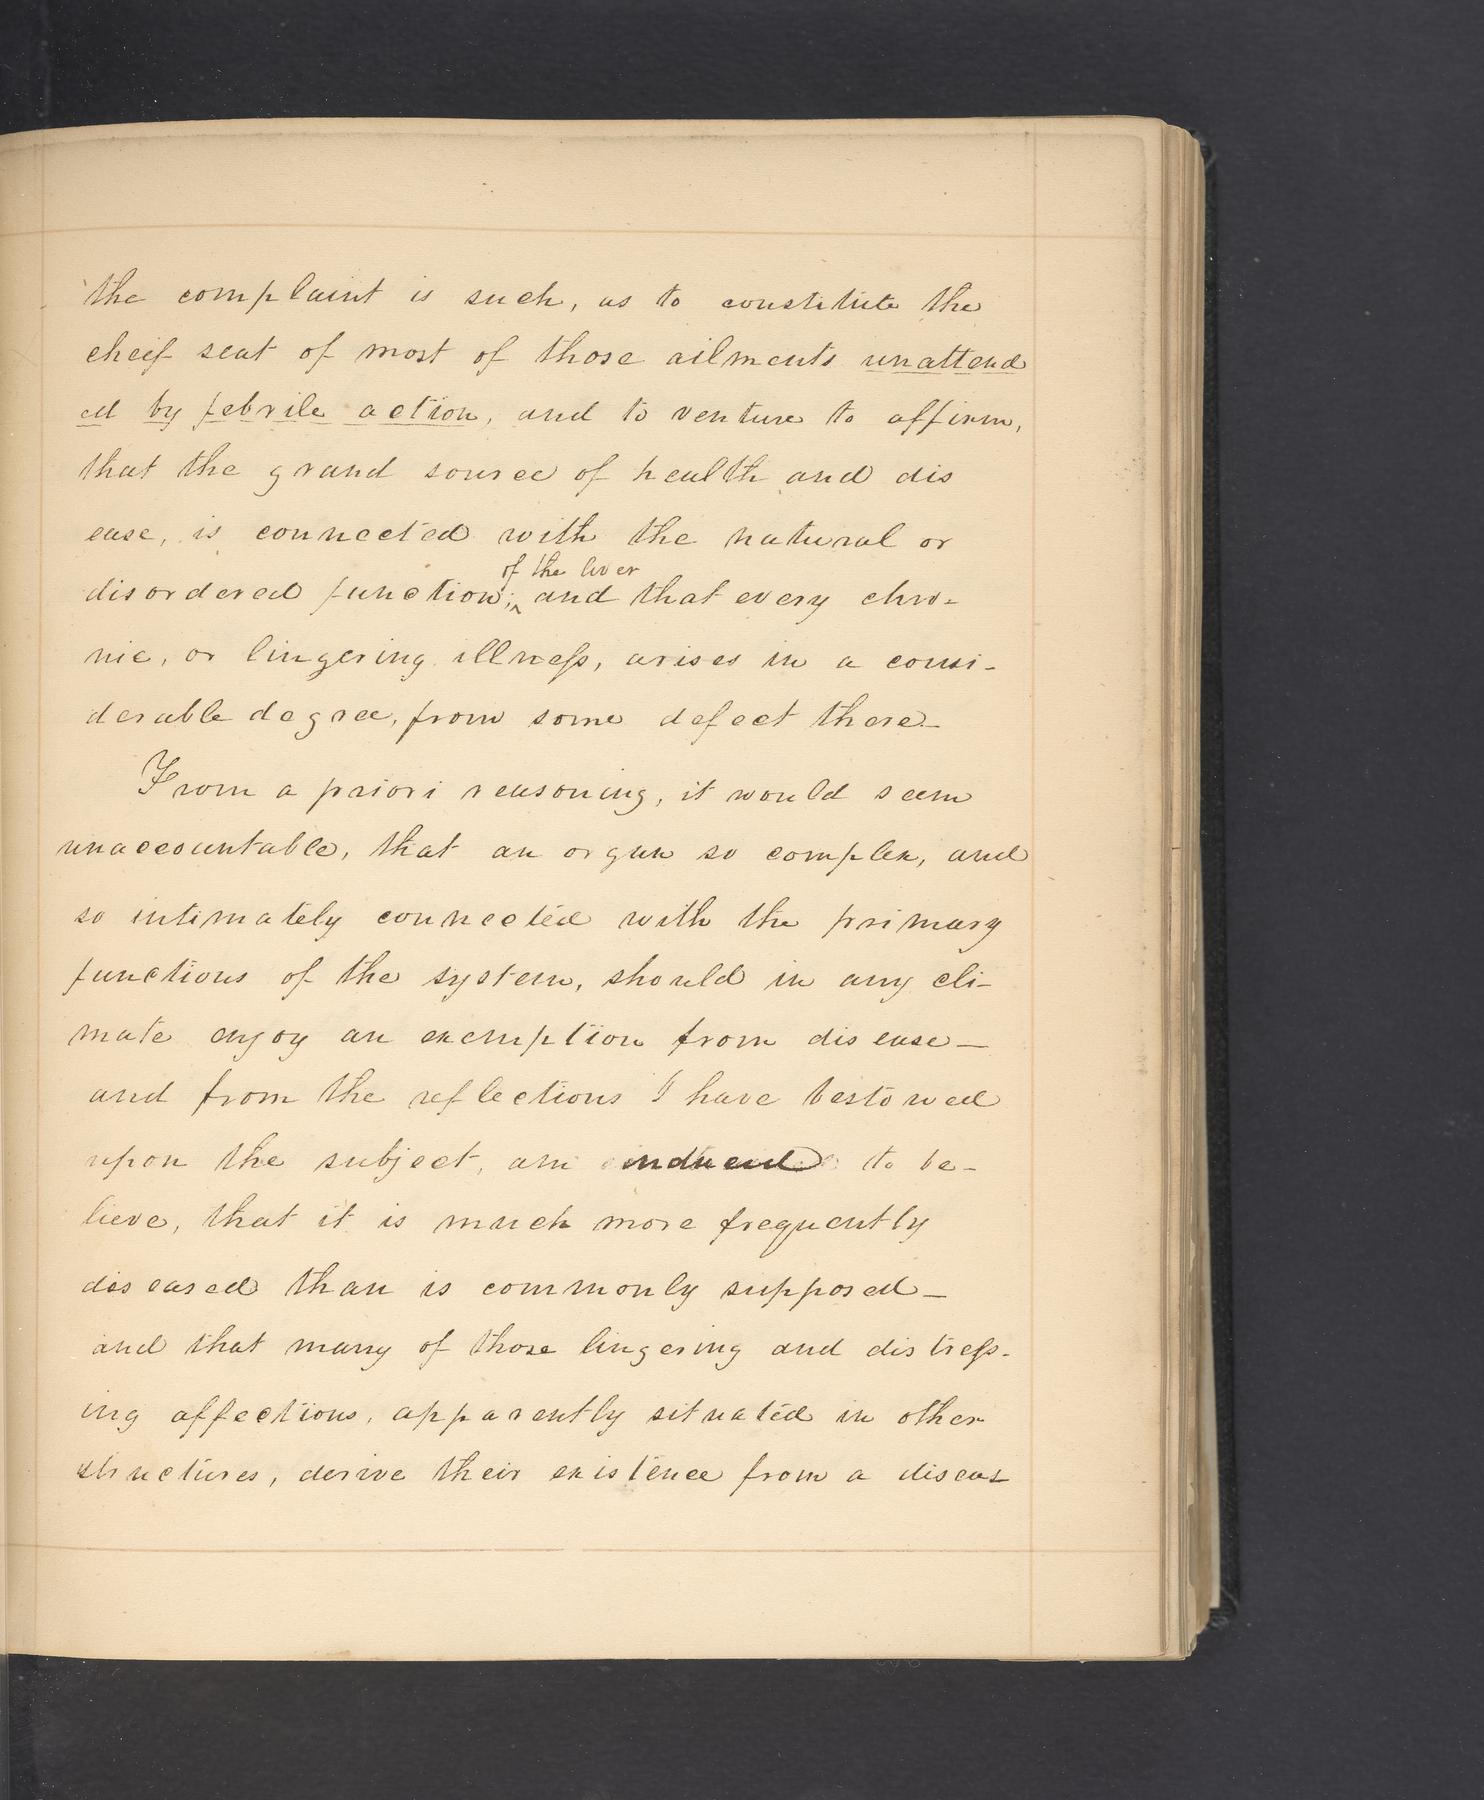 the complaint is such, as to constitute the
cheif seat of most of those ailments unattend
ed by febrile action, and to venture to affirm,
that the grand source of health and dis
ease, is connected with the natural or
of the liver
disordered function;^ and that every chro-
nic, or lingering illneſs, arises in a consi-
derable degree, from some defect there—
From a priori reasoning, it would seem
unaccountable, that an organ so complex, and
so intimately connected with the primary
functions of the system, should in any cli-
mate enjoy an exemption from disease—
and from the reflections I have bestowed
upon the subject, am induced to be-
lieve, that it is much more frequently
diseased than is commonly supposed—
and that many of those lingering and distreſs-
ing affections, apparently situated in other
structures, derive their existence from a diseas